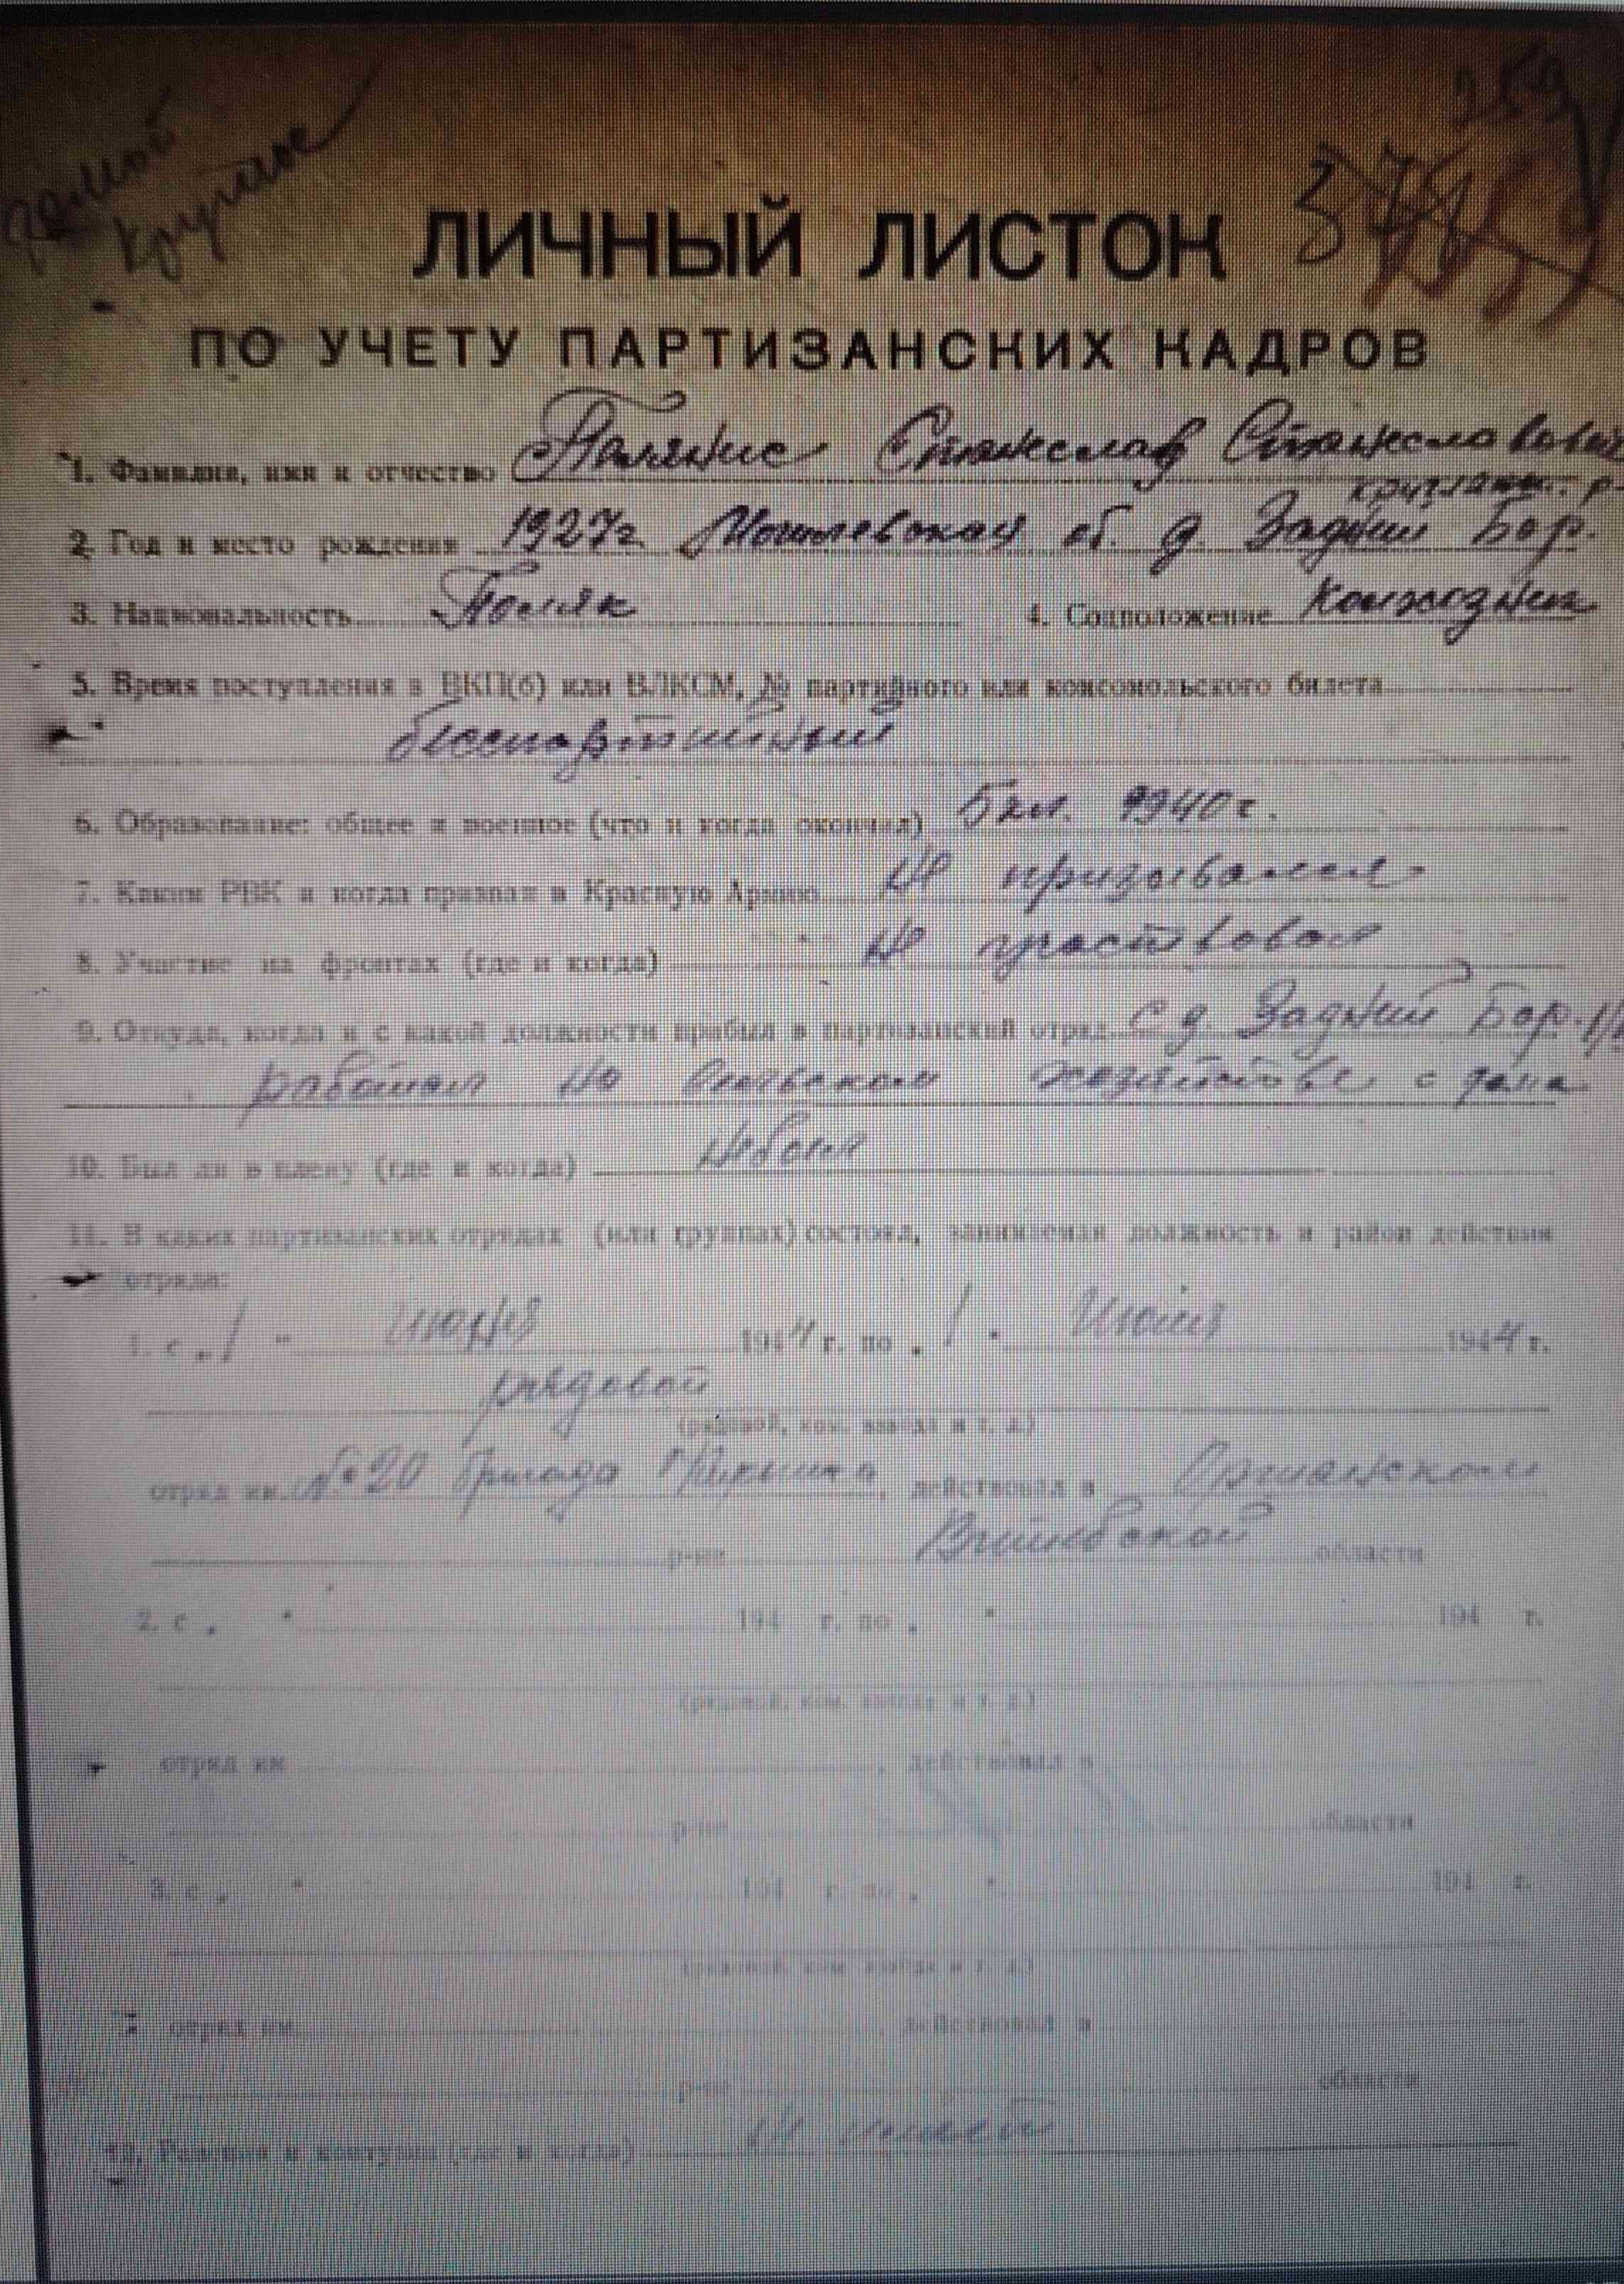 домой
Круглое
259
ЛИЧНЫЙ ЛИСТОК
ПО УЧЕТУ ПАРТИЗАНСКИХ КАДРОВ
1. Фамилия, имя и отчество Станислав Станиславович
круглянск. р-
2. Год и место рождения 1927г. Могилевская об. д. Задний Бор.
3. Национальность Поляк 4. Соцположение Колхозник
5. Время поступления в ВКП(б) или ВЛКСМ, № партийного или комсомольского билета
беспартийный
6. Образование: общее и военное (что и когда окончил) 5 кл. 1940 г.
7. Каким РВК и когда призван в Красную Армию Не призывался
8. Участие на фронтах (где и когда) Не участвовал
9. Откуда, когда и с какой должности прибыл в партизанский отряд С д. Задний Бор.
работал но сельском хозяйстве с дома
10. Был ли в плену (где и когда) Не был
11. В каких партизанских отрядах (или группах) состоял, занимаемая должность и район действия
отряда:
1. с „1 " июня 1944 г. по „1 " Июля 1944 г.
рядовой
(рядовой, ком. взвода и т. д.)
отряд им. №20 бригада Гришина, действовал в Оршанском
р-не Витебской области
2. с „ " 194 г. по „ " 194 г.
(рядовой, ком. взвода и т. д.)
отряд им. , действовал в
р-не области
3. с „ " 194 г. по „ " 194 г.
(рядовой, ком. взвода и т. д.)
отряд им. , действовал в
р-не области
12. Ранения и контузии (где и когда) Не имеет